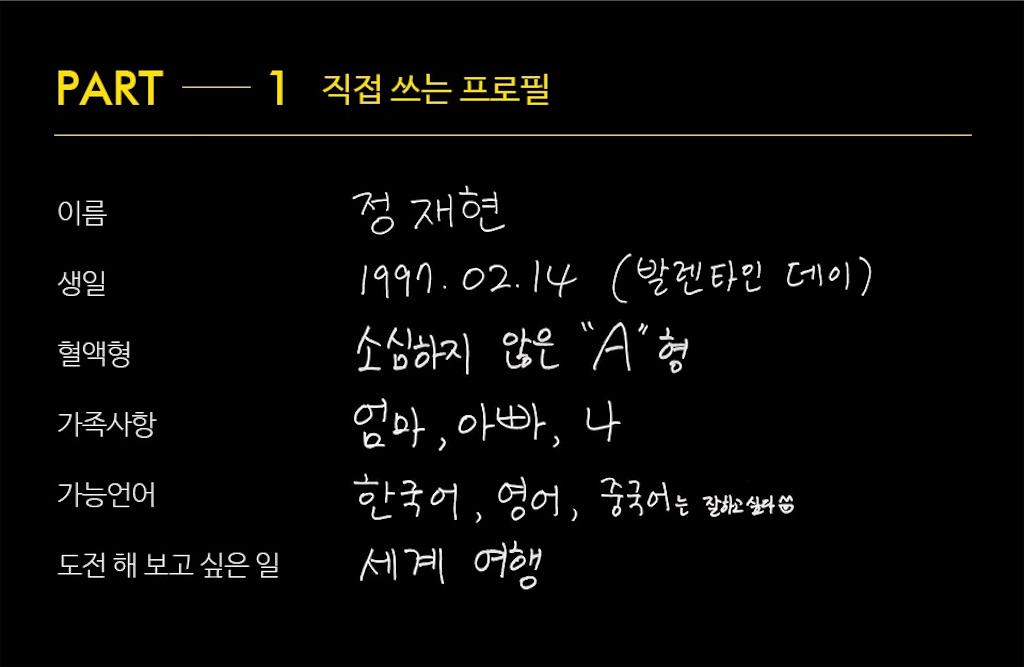 PART — 1 직접 쓰는 프로필
이름 정 재현
생일 1997. 02. 14 (발렌타인 데이)
혈액형 소심하지 않은 "A"형
가족사항 엄마, 아빠, 나
가능언어 한국어, 영어, 중국어는 잘하고 싶다
도전 해 보고 싶은 일 세계 여행